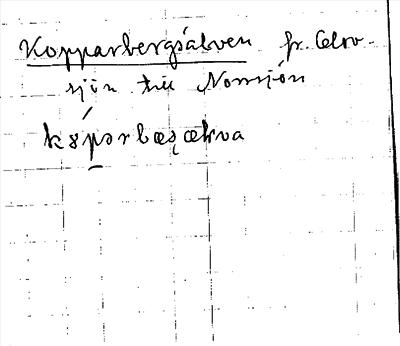 Kopparbergsälven fr. Olov-
sjön till Norrsjön
kȣ́pərbæs̨æłva